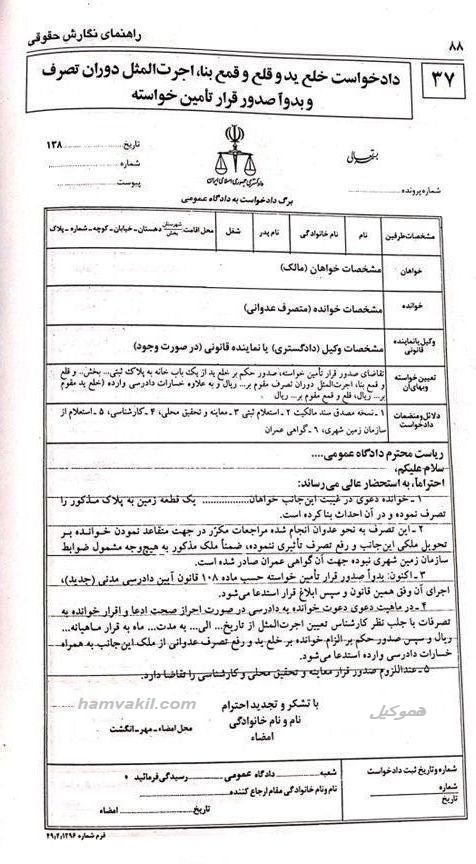 راهنمای نگارش حقوقی
۸۸
۳۷
دادخواست خلع ید و قلع و قمع بنا، اجرت‌المثل دوران تصرف
و بدواً صدور قرار تأمین خواسته
بسمه تعالی
تاریخ ............ ۱۳۸
شماره ............
پیوست ............
شماره پرونده ............
دادگستری جمهوری اسلامی ایران
برگ دادخواست به دادگاه عمومی
مشخصات طرفین
نام
نام خانوادگی
نام پدر
شغل
محل اقامت شهرستان بخش دهستان - خیابان - کوچه - شماره - پلاک
خواهان
مشخصات خواهان (مالک)
خوانده
مشخصات خوانده (متصرف عدوانی)
وکیل یا نماینده قانونی
مشخصات وکیل (دادگستری) یا نماینده قانونی (در صورت وجود)
تعیین خواسته وبهای آن
تقاضای صدور قرار تأمین خواسته، صدور حکم بر خلع ید از یک باب خانه به پلاک ثبتی... بخش.. و قلع
و قمع بنا، اجرت‌المثل دوران تصرف مقوم بر... ریال و به علاوه خسارات دادرسی وارده (خلع ید مقوم
بر... ریال، قلع و قمع مقوم بر... ریال)
دلائل و منضمات دادخواست
۱- نسخه مصدق سند مالکیت ۲- استعلام ثبتی ۳- معاینه و تحقیق محلی، ۴- کارشناسی، ۵- استعلام از
سازمان زمین شهری، ۶- گواهی عمران
ریاست محترم دادگاه عمومی....
سلام علیکم،
احتراماً، به استحضار عالی می‌رساند:
۱- خوانده دعوی در غیبت این‌جانب خواهان.................. یک قطعه زمین به پلاک مذکور را
تصرف نموده و در آن احداث بنا کرده است.
۲- این تصرف به نحو عدوان انجام شده مراجعات مکرّر در جهت متقاعد نمودن خوانده بر
تحویل ملکی این‌جانب و رفع تصرف تأثیری ننموده، ضمناً ملک مذکور به هیچ‌وجه مشمول ضوابط
سازمان زمین شهری نبوده جهت آن گواهی عمران صادر شده است.
۳- اکنون: بدواً صدور قرار تأمین خواسته حسب ماده ۱۰۸ قانون آیین دادرسی مدنی (جدید)،
اجرای آن وفق همین قانون و سپس ابلاغ قرار استدعا می‌شود.
۴- در ماهیت دعوی دعوت خوانده به دادرسی در صورت احراز صحت ادعا و اقرار خوانده به
تصرفات با جلب نظر کارشناسی تعیین اجرت‌المثل از تاریخ... الی... به مدت... ماه به قرار ماهیانه...
ریال و سپس صدور حکم بر الزام خوانده بر خلع ید و رفع تصرف عدوانی از ملک این‌جانب به همراه
خسارات دادرسی وارده استدعا می‌شود.
۵- عنداللزوم صدور قرار معاینه و تحقیق محلی و کارشناسی را تقاضا دارد.
با تشکر و تجدید احترام
نام و نام خانوادگی
امضاء
محل امضاء - مهر - انگشت
hamvakil.com
هموکیل
شماره و تاریخ ثبت دادخواست
شماره
تاریخ
شعبه ............ دادگاه عمومی ............ رسیدگی فرمائید
نام و نام خانوادگی مقام ارجاع کننده ............
تاریخ امضاء
فرم شماره ۴۹٫۲٫۱۲۹۶